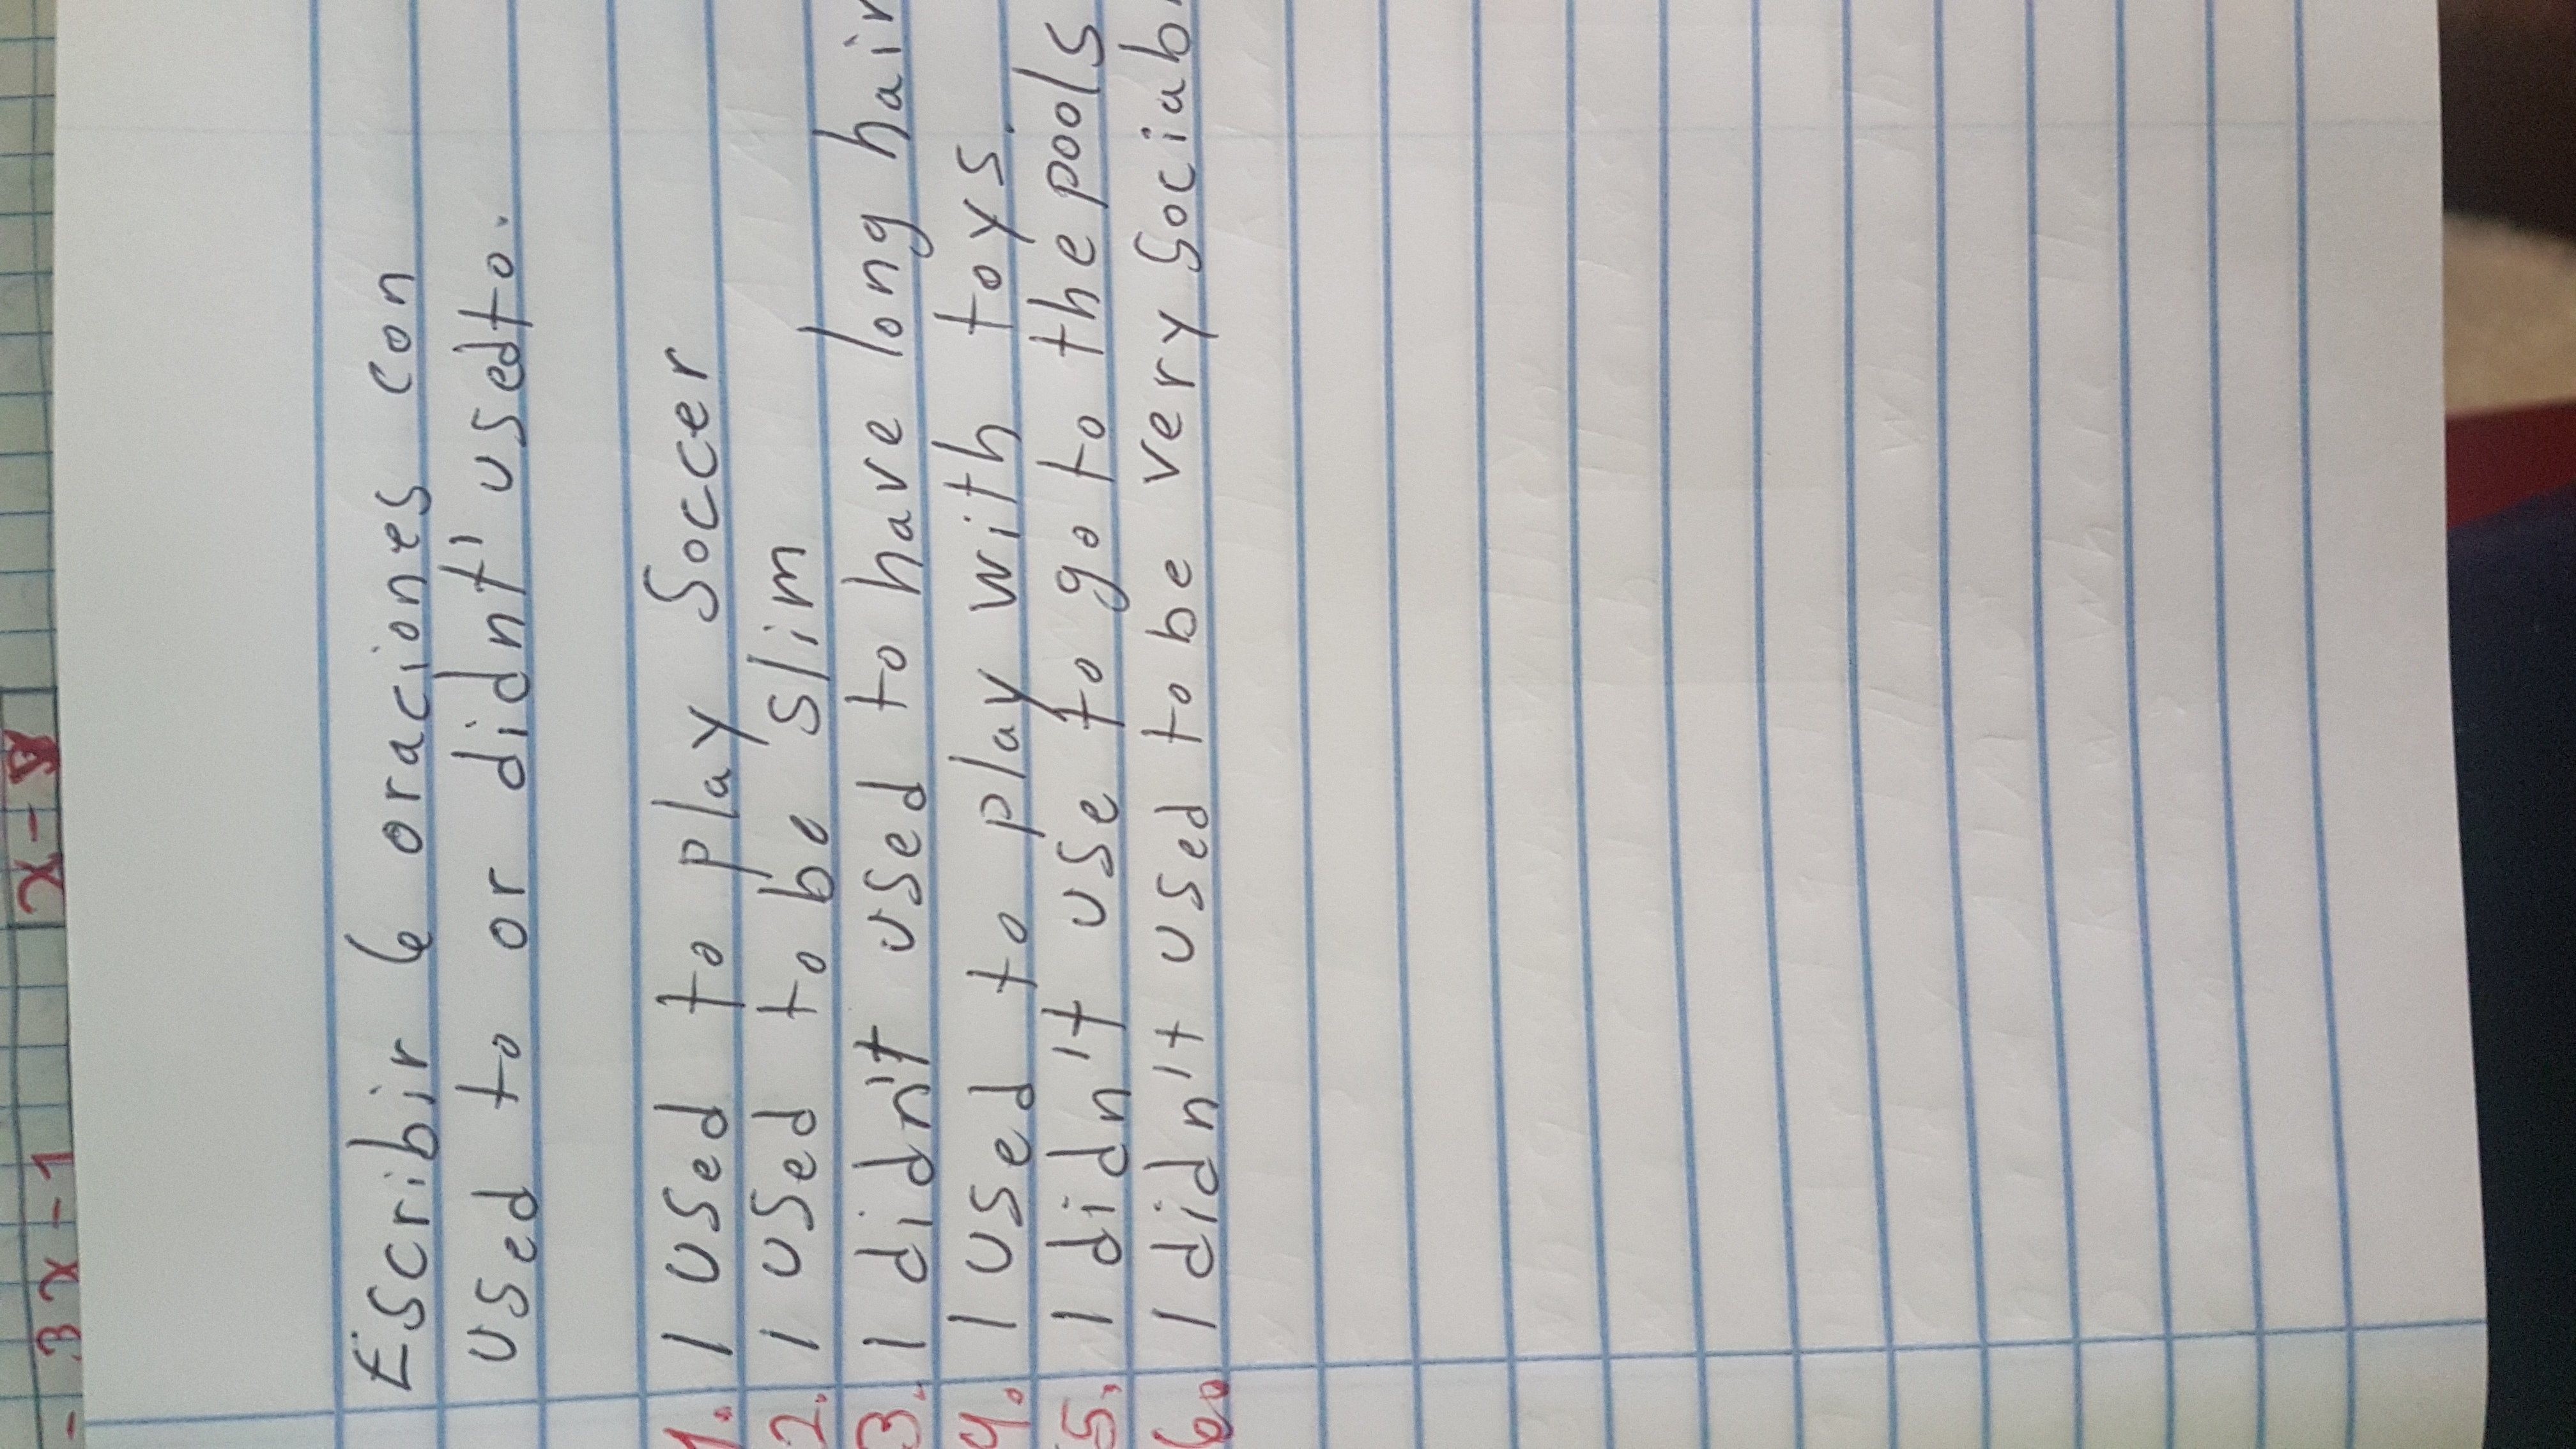 - 3x - 1 x - 8
Escribir 6 oraciones con
used to or didnt' used to.
1. I used to play Soccer
2. I used to be slim
3. I didn't used to have long hair
4. I used to play with toys.
5. I didn't use to go to the pools
6. I didn't used to be very Sociab